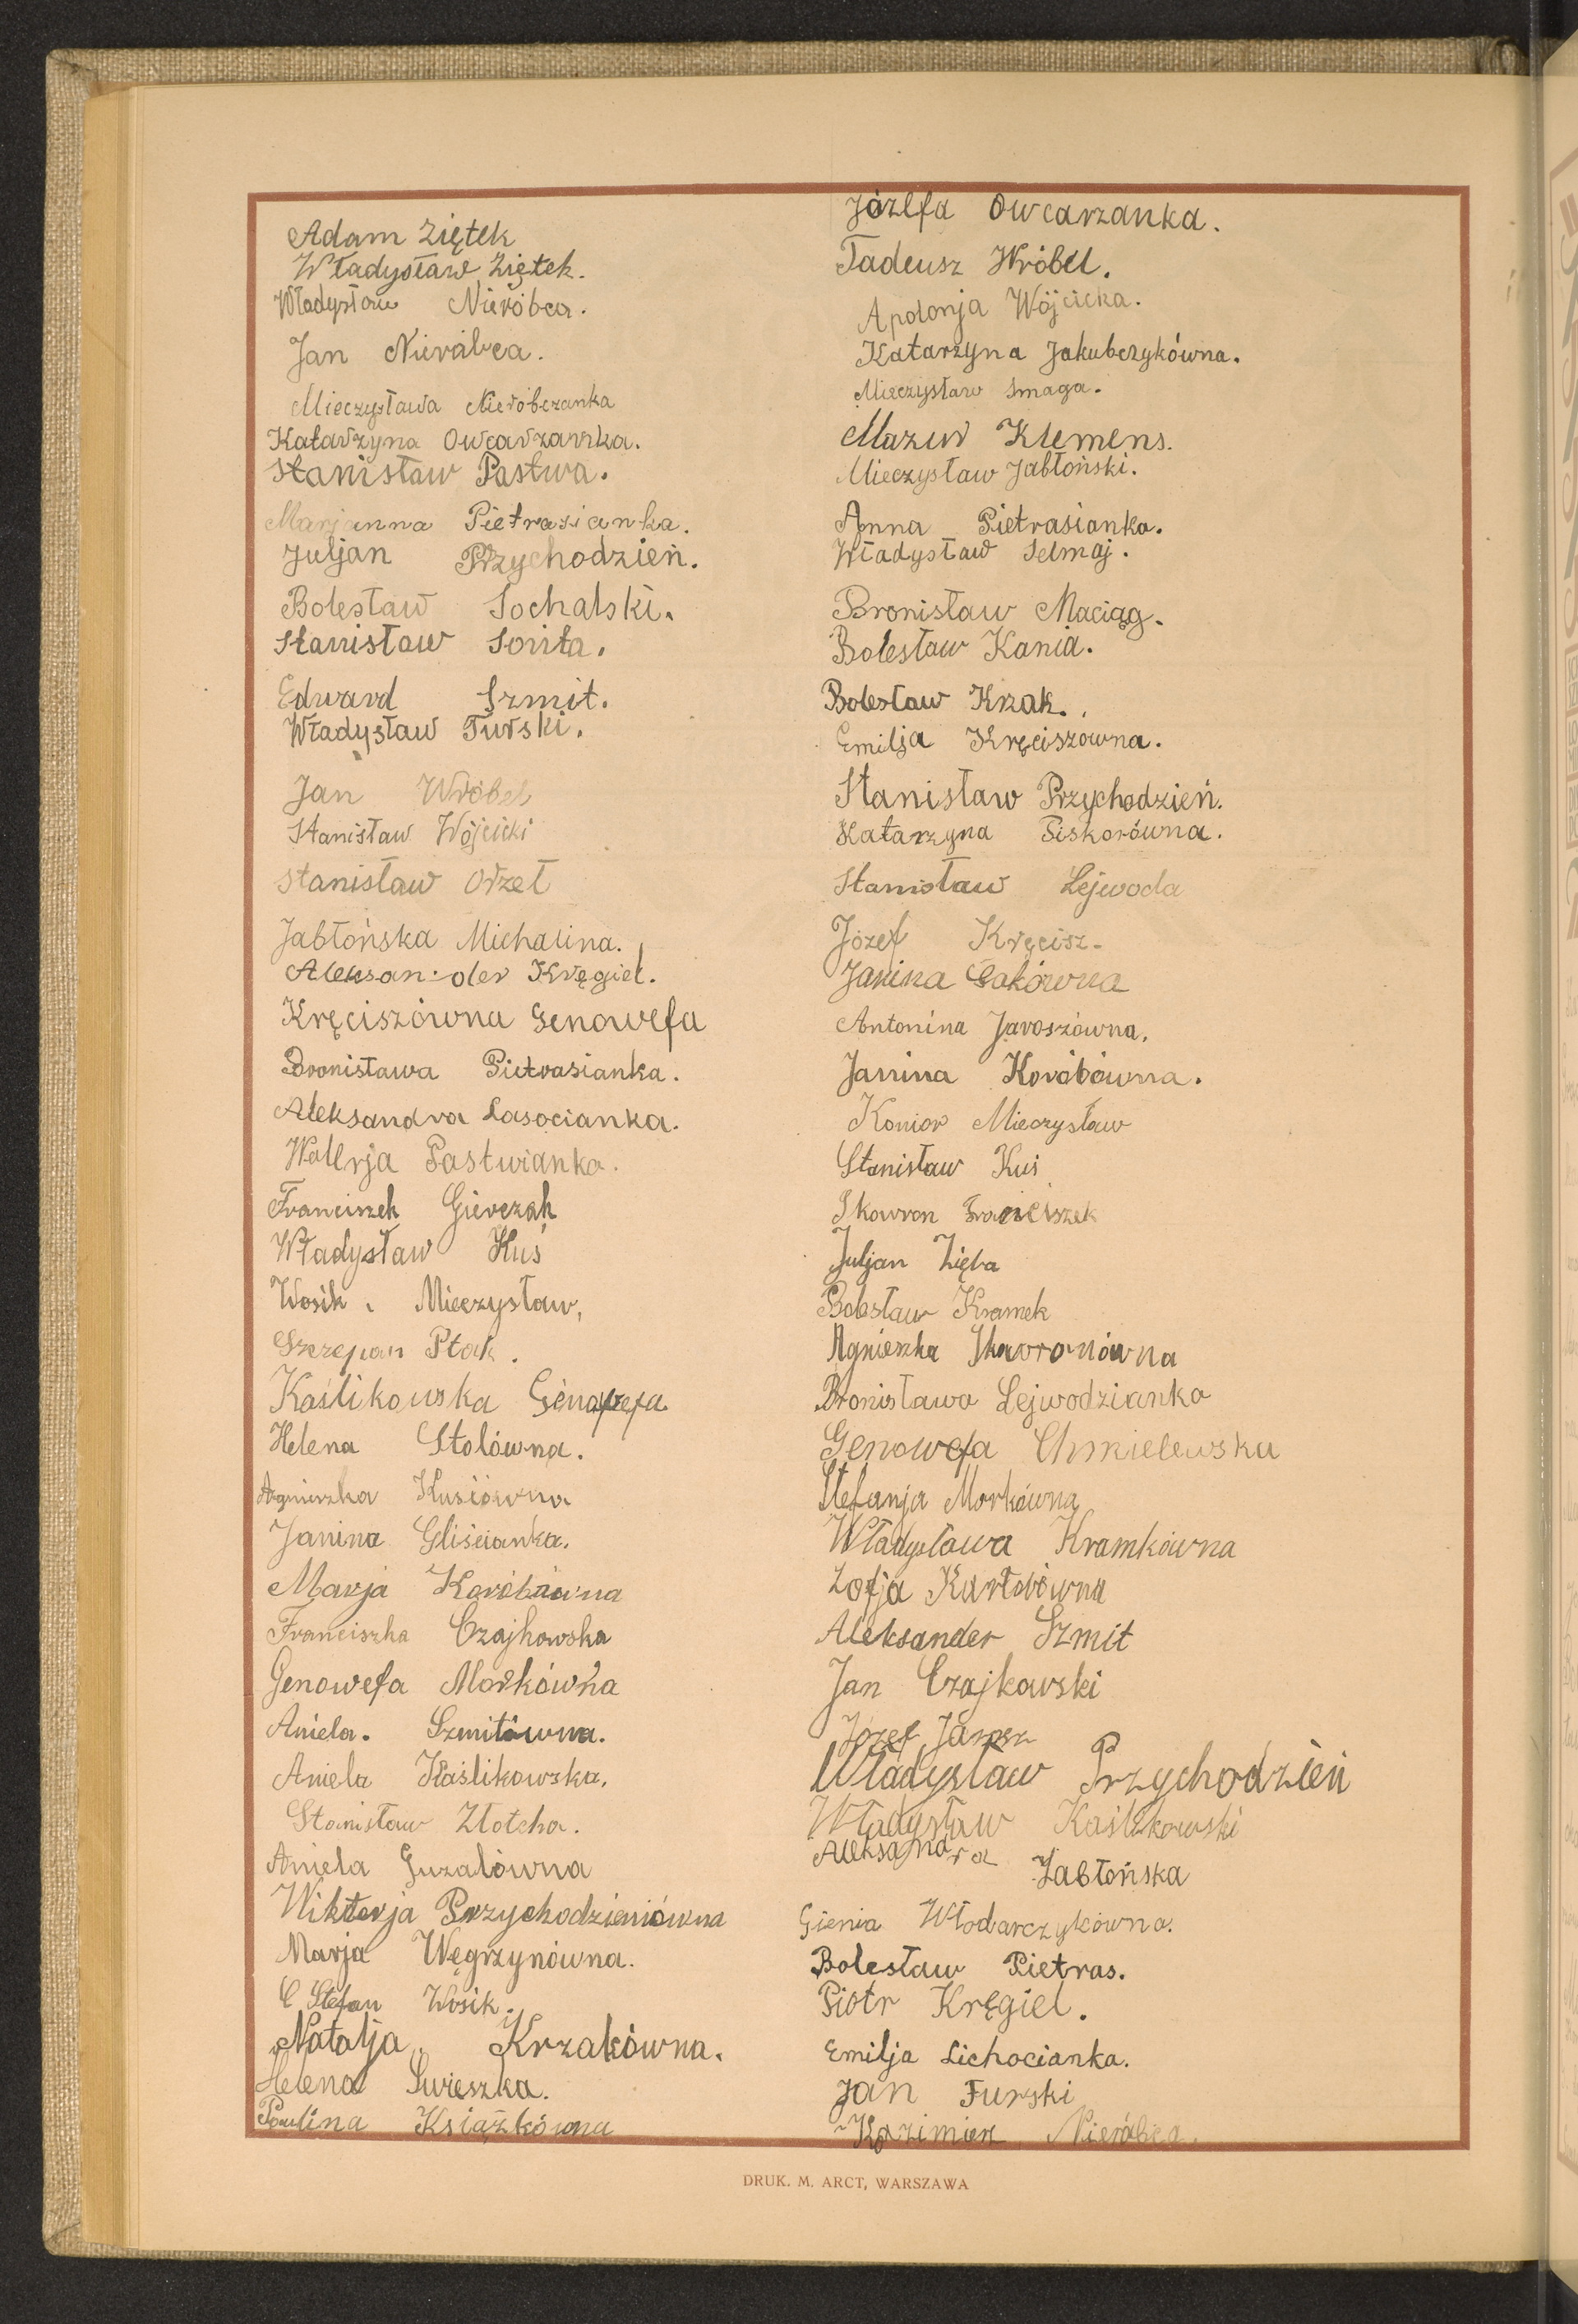 Adam Ziętek
Władysław Ziętek.
Władysław Nieróbca.
Jan Nieróbca.
Mieczysława Nieróbczanka
Katarzyna Owcarzanka.
Stanisław Pastwa.
Marjanna Pietrasianka.
Juljan Przychodzień.
Bolesław Sochalski.
Stanisław Sońta.
Edward Szmit.
Władysław Turski.
Jan Wróbel
Stanisław Wójcicki
Stanisław Orzeł
Jabłońska Michalina.
Aleksan-der Kręgiel.
Kręciszówna Genowefa
Bronisława Pietrasianka.
Aleksandra Lasocianka.
Walerja Pastwianka.
Franciszek Gierczak
Władysław Kuś
Wosik Mieczysław,
Szczepan Ptak.
Kaślikowska Genowefa.
Helena Stolówna.
Agnieszka Kusiówna
Janina Gliścianka.
Marja Koróbówna
Franciszka Czajkowska
Genowefa Morkówna
Aniela. Szmitówna.
Aniela Kaślikowska.
Stanisław Złotcha.
Aniela Guzalówna
Wiktorja Przychodzieniówna
Marja Węgrzynówna.
Stefan Wosik.
Natalja Krzakówna.
Helena Świeszka.
Paulina Książkówna
Józefa Owcarzanka.
Tadeusz Wróbel.
Apolonja Wójcicka.
Katarzyna Jakubczykówna.
Mieczysław Smaga.
Mazur Klemens.
Mieczysław Jabłoński.
Anna Pietrasianka.
Władysław Selmaj.
Bronisław Maciąg.
Bolesław Kania.
Bolesław Krzak.
Emilja Kręciszówna.
Stanisław Przychodzień.
Katarzyna Piskorówna.
Stanisław Lejwoda
Józef Kręcisz.
Janina
Antonina Jaroszówna.
Janina Koróbówna.
Konior Mieczysław
Stanisław Kuś
Skowron Franciszek
Juljan Zięba
Bolesław Kramek
Agnieszka Skowronówna
Bronisława Lejwodzianka
Genowefa Chmielewska
Stefanja Morkówna
Władysława Kramkówna
Zofja
Aleksander Szmit
Jan Czajkowski
Józef Janosz
Władysław Przychodzień
Władysław Kaślikowski
Aleksandra Jabłońska
Gienia Włodarczykówna.
Bolesław Pietras.
Piotr Kręgiel.
Emilja Lichocianka.
Jan Turski
Kazimierz Nieróbca.
DRUK. M. ARCT, WARSZAWA